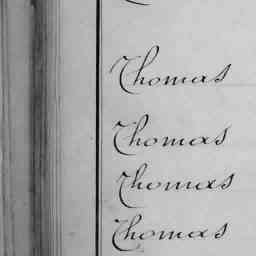 Thomas
Thomas
Thomas
Thomas